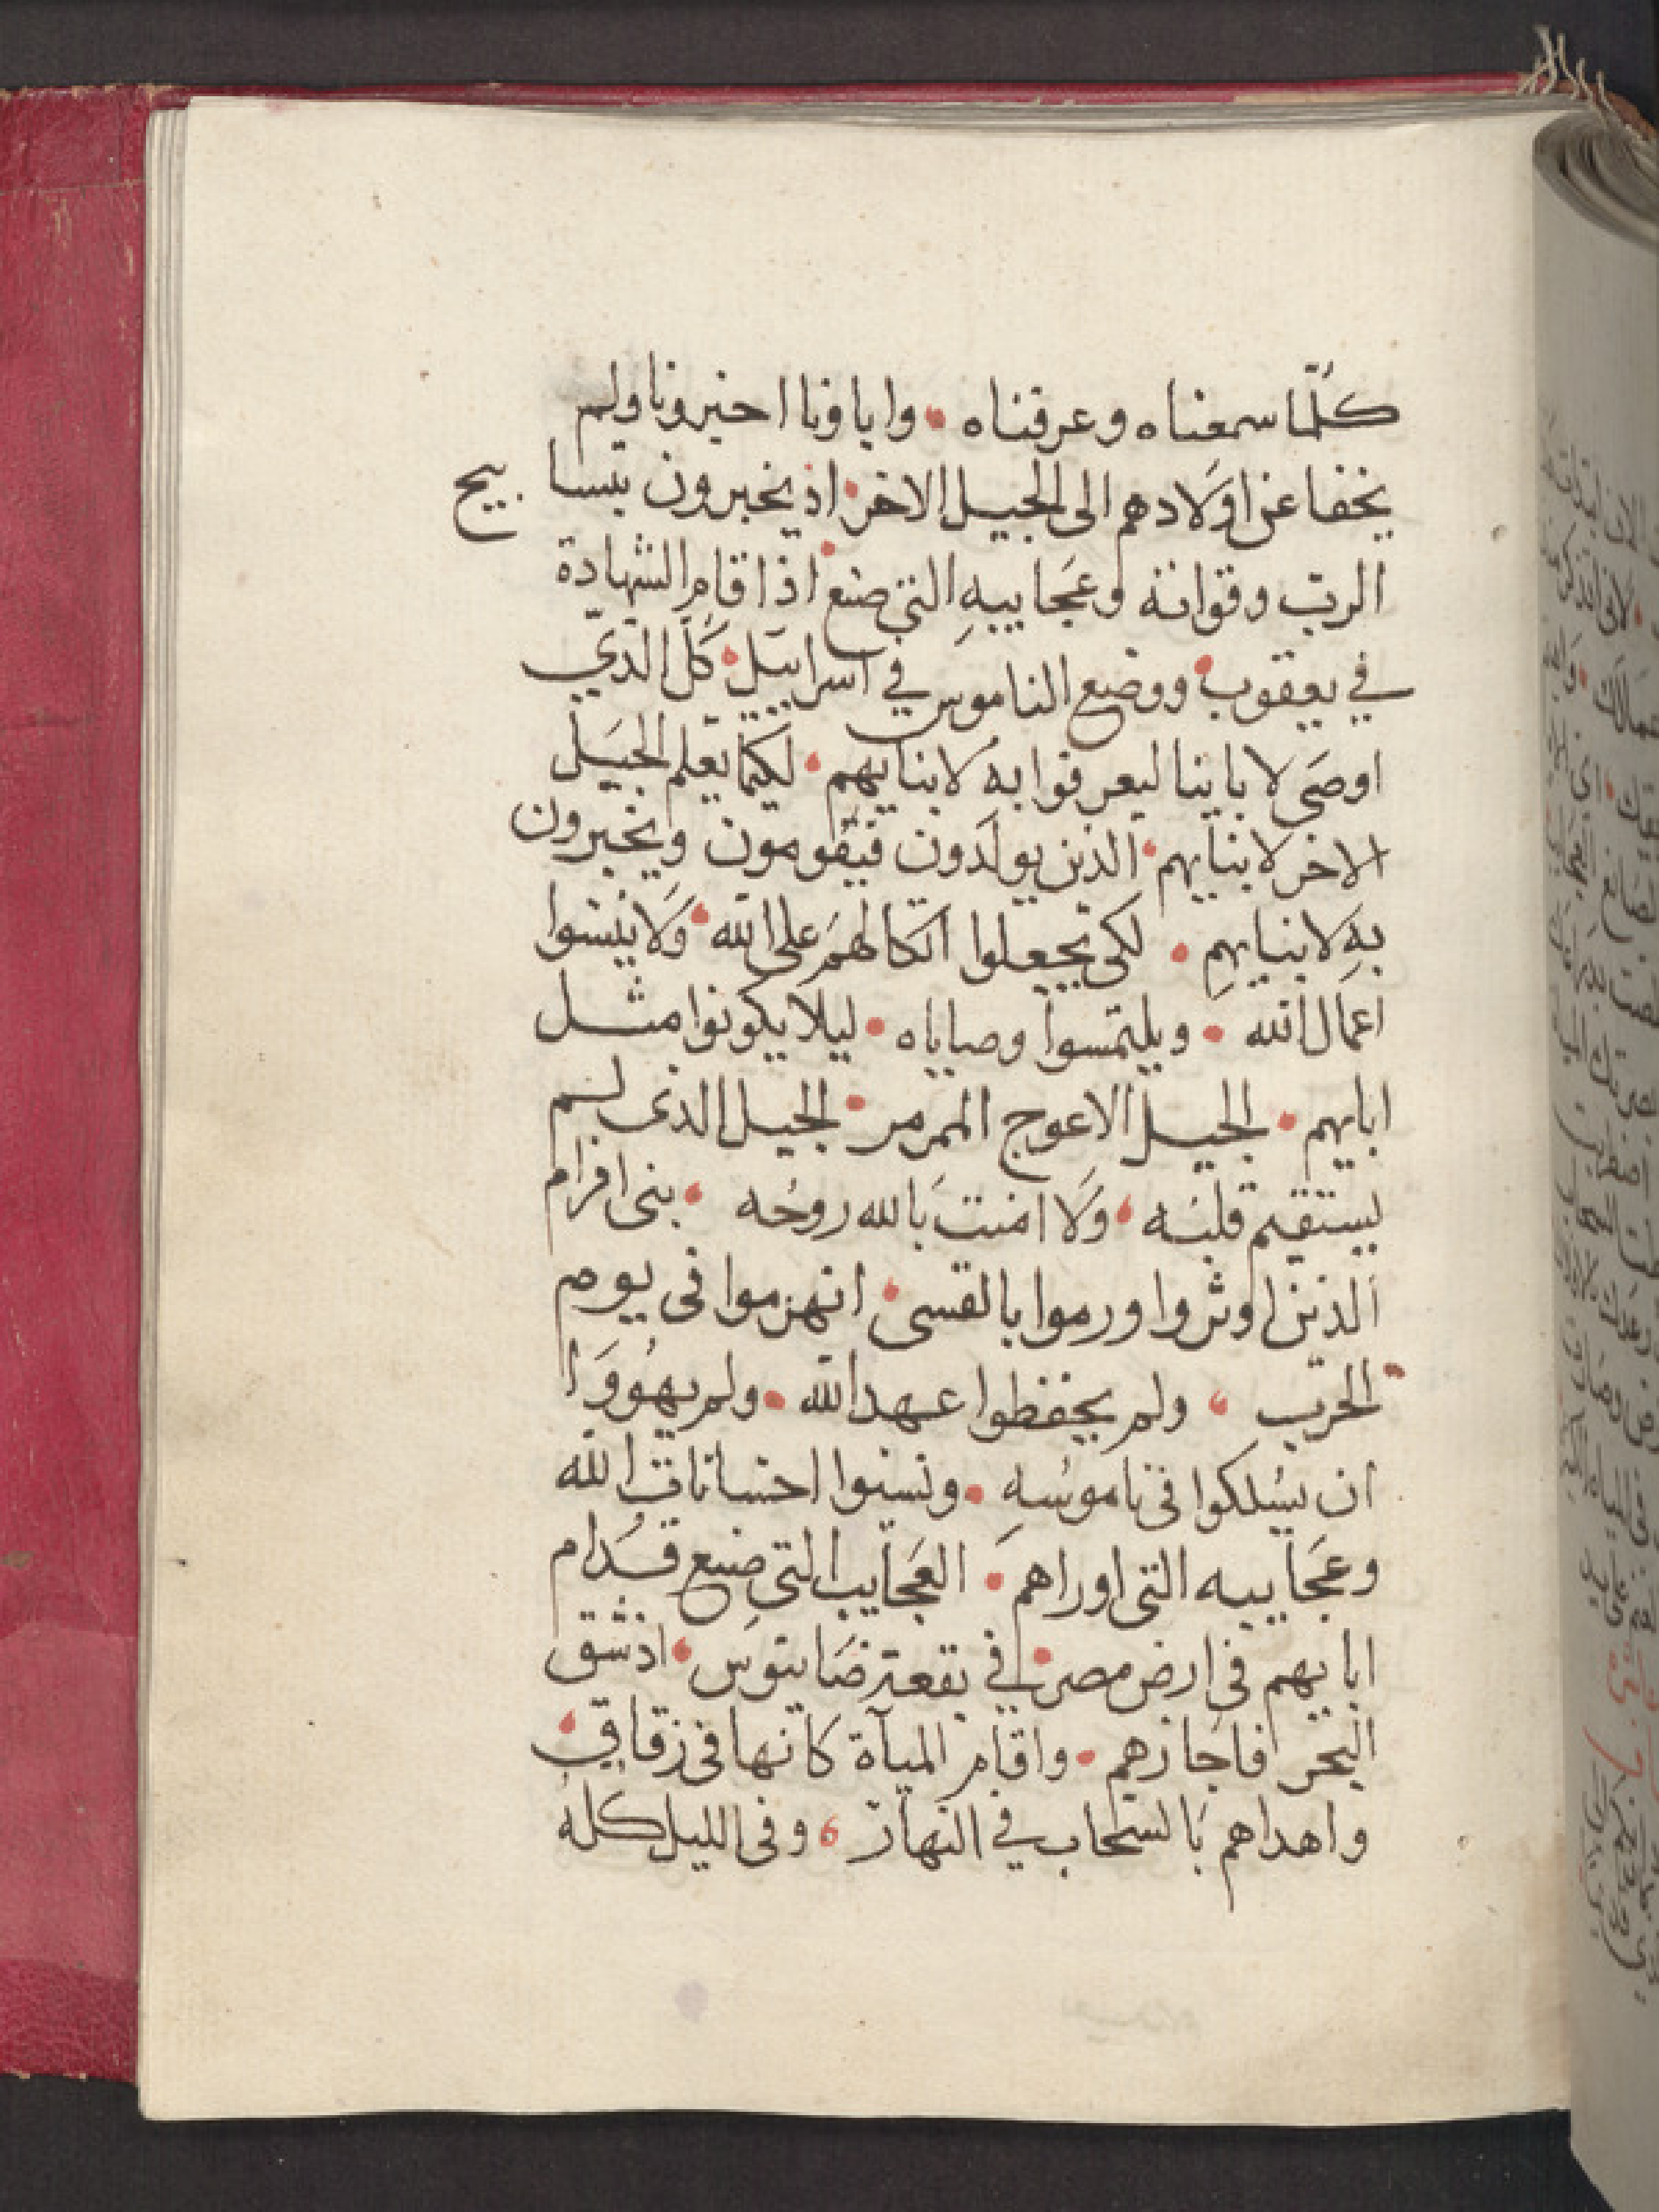 كلّما سمعناه وعرفناه • واباونا اخبرونا ولم
يخفا عن اولادهم الى الجيل الاخر • اذ يخبرون بتسابيح
الربّ وقواته وعجاييبهِ التي صنع • اذ اقام الشهادة
في يعقوب • ووضع الناموس في اسراييل • كلّ الذي
اوصى لاباينا ليعرفوا به لابنايهم • لكيما يعلم الجيل
الاخر لابنايهم • الذين يولدون فيقومون ويخبرون
بهِ لابنايهمِ • لكى يجعلوا اتكالهم على الله • ولا ينسوا
اعمال الله • ويلتمسوا وصاياه • ليلا يكونوا مثل
ابايهم • الجيل الاعوج الممرمر • الجيل الذى لم
يستقيم قلبه • ولا امنت بالله روحُه • بنى افرام
الذين اوثروا ورموا بالقسى • انهزموا فى يوم
الحرب • ولم يحفظوا عهد الله • ولم يهُووَا
ان يسُلكوا فى ناموسُهِ • ونسيوا احسانات الله
وعجاييبه التى اوراهم • العجايب التى صنع قُدام
ابايهم فى ارض مصر • في بقعة ضانيوس • اذ شق
البحر فاجازهم • واقام المياة كانها فى زقاق •
واهداهم بالسحاب في النهار • وفى الليل كله